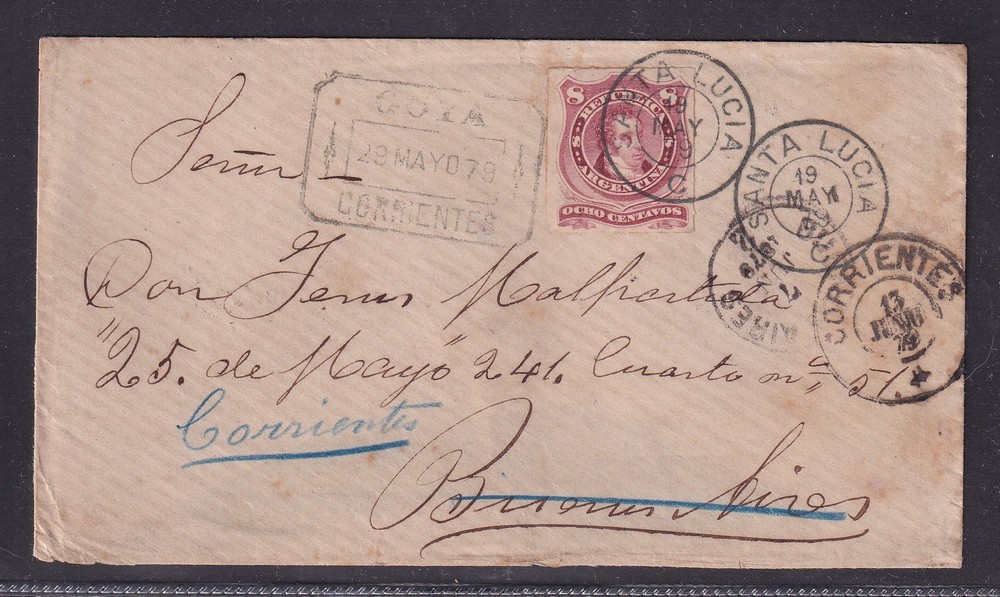 GOYA
29 MAYO 79
CORRIENTES
8 8
REPUBLICA
ARGENTINA
8 8
OCHO CENTAVOS
SANTA LUCIA
19
MAY
79
C
SANTA LUCIA
19
MAY
79
C
AIRES
CORRIENTES
13
JUNIO
79
Señor
Don Jesus Malpartida
"25. de Mayo" 241. Cuarto nº 51.
Corrientes
Buenos Aires